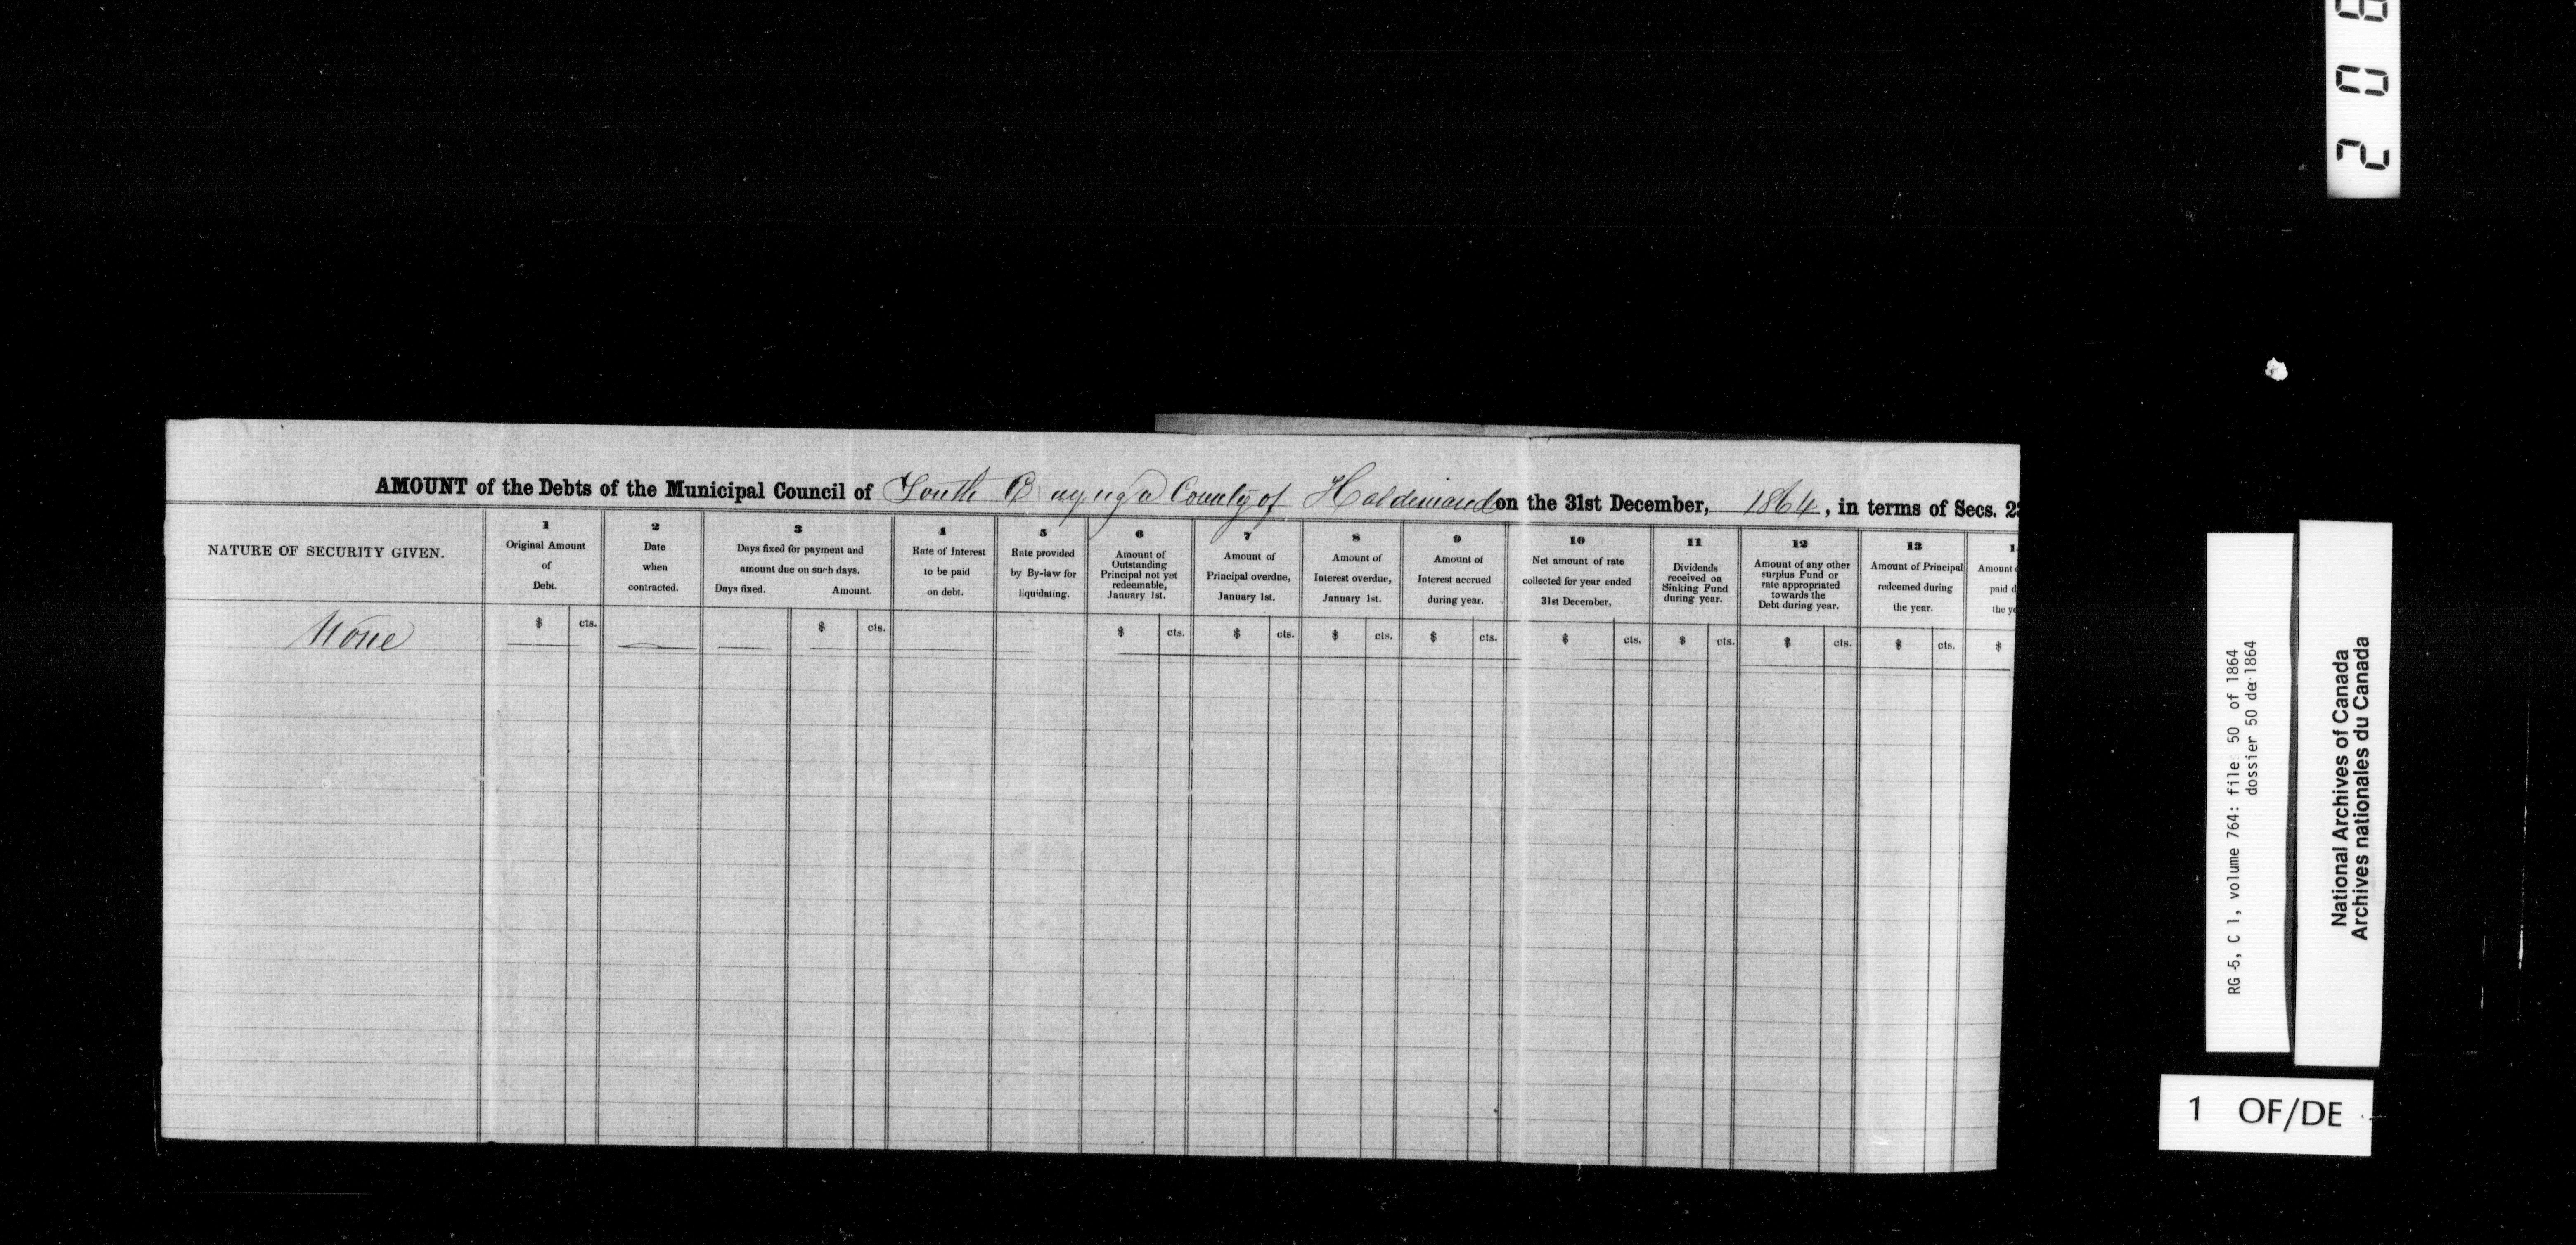 AMOUNT of the Debts of the Municipal Council of South Cayuga County of Haldimand on the 31st December, 1864, in terms of Secs. 2
NATURE OF SECURITY GIVEN.
1
Original Amount
of
Debt.
$ cts.
2
Date
when
contracted.
3
Days fixed for payment and
amount due on such days.
Days fixed. Amount.
$ cts.
4
Rate of Interest
to be paid
on debt.
5
Rate provided
by By-law for
liquidating.
6
Amount of
Outstanding
Principal not yet
redeemable,
January 1st.
$ cts.
7
Amount of
Principal overdue,
January 1st.
$ cts.
8
Amount of
Interest overdue,
January 1st.
$ cts.
9
Amount of
Interest accrued
during year.
$ cts.
10
Net amount of rate
collected for year ended
31st December,
$ cts.
11
Dividends
received on
Sinking Fund
during year.
$ cts.
12
Amount of any other
surplus Fund or
rate appropriated
towards the
Debt during year.
$ cts.
13
Amount of Principal
redeemed during
the year.
$ cts.
1
Amount
paid d
the ye
$
None
RG 5, C 1, volume 764: file 50 of 1864
dossier 50 de 1864
National Archives of Canada
Archives nationales du Canada
1 OF/DE
2 0 8